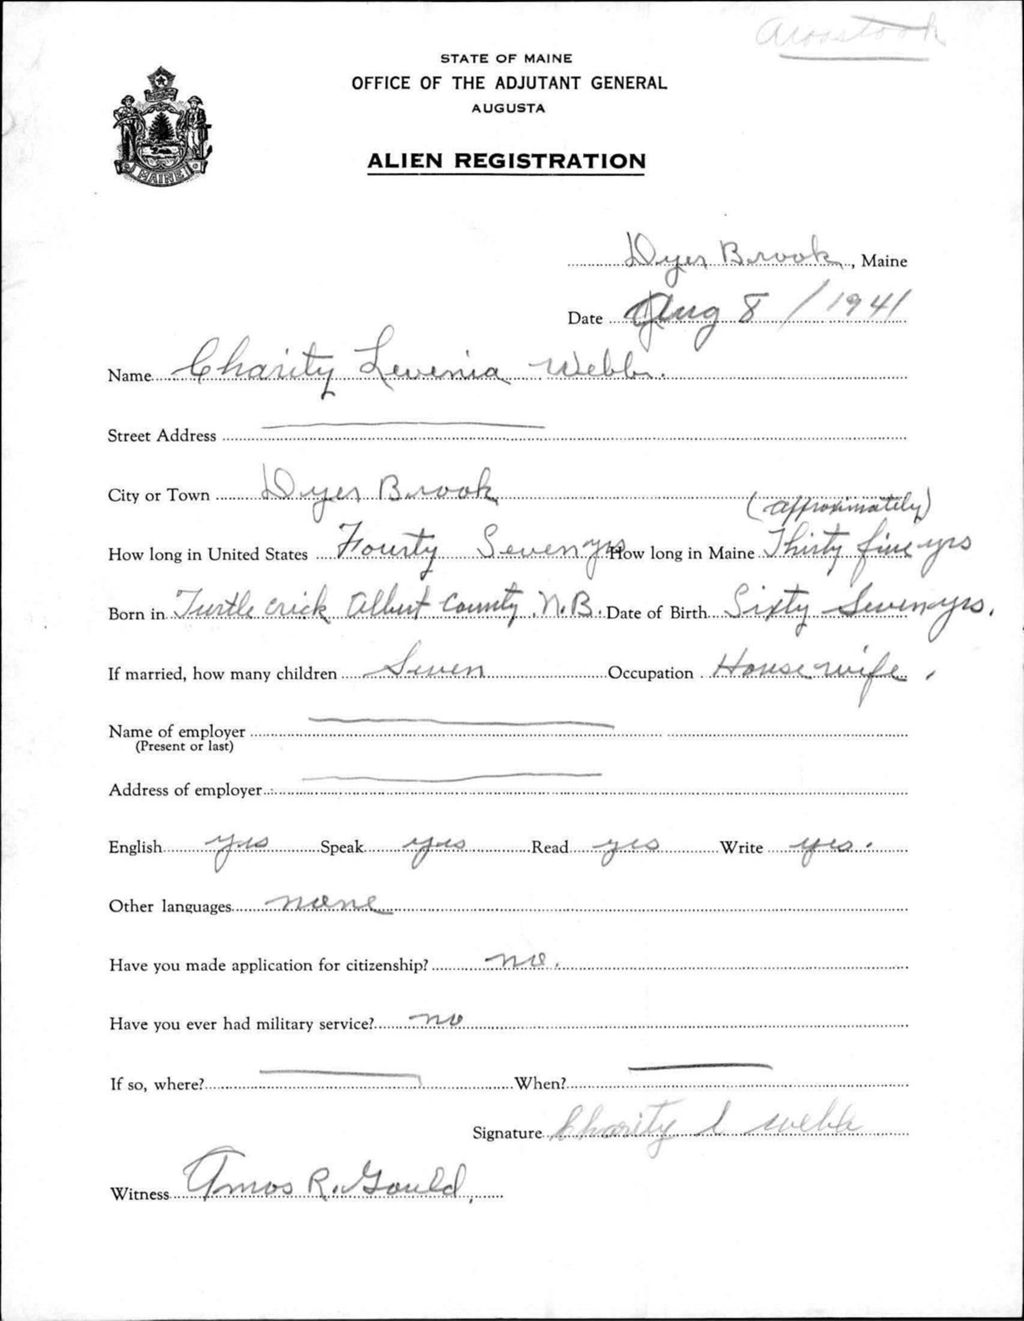 Aroostook
STATE OF MAINE
OFFICE OF THE ADJUTANT GENERAL
AUGUSTA
ALIEN REGISTRATION
MAINE
Dyer Brook, Maine
Date Aug 8 / 1941
Name Charity Levenia Webb.
Street Address
City or Town Dyer Brook
(approximately)
How long in United States Fourty Seven yrs How long in Maine Thirty five yrs
Born in Turtle Crick Albert County N.B. Date of Birth Sixty Seven yrs.
If married, how many children Seven Occupation House wife.
Name of employer
(Present or last)
Address of employer
English yes Speak yes Read yes Write yes.
Other languages none
Have you made application for citizenship? no.
Have you ever had military service? no
If so, where? When?
Signature Charity L Webb
Witness Amos R. Gould